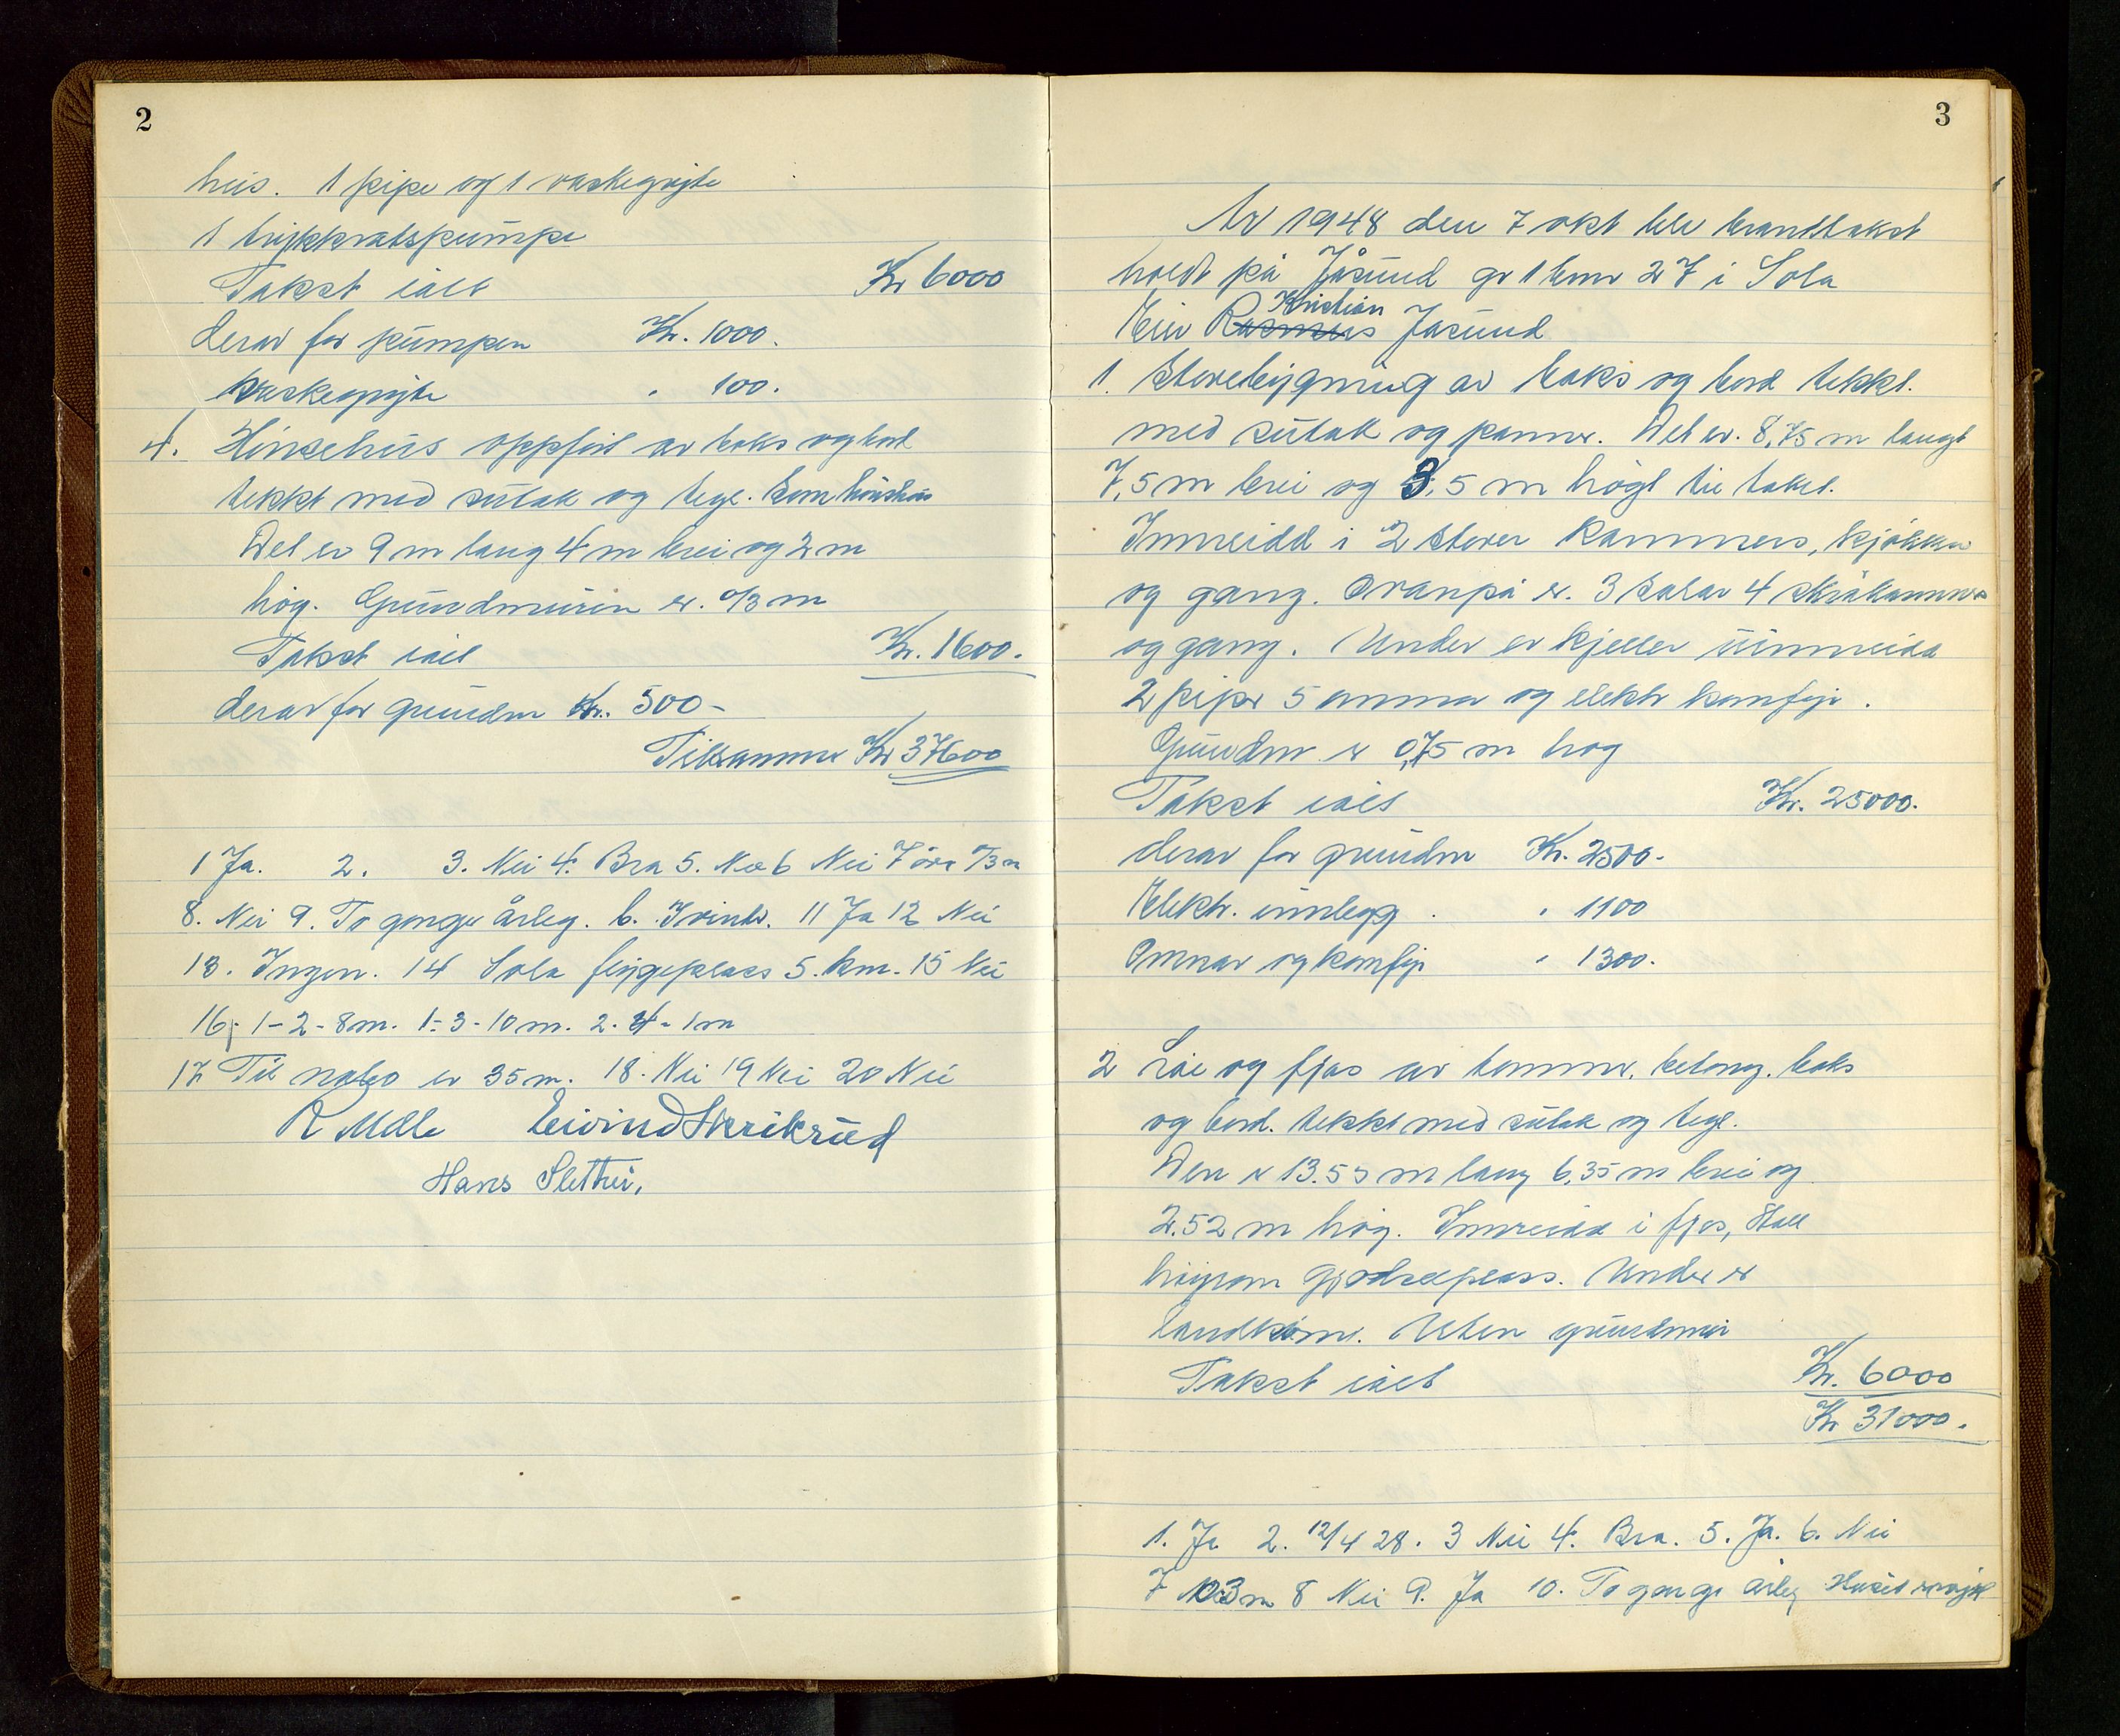 2
hus. 1 pipe og 1 vaskegryte
1 trykkvatspumpe
Takst ialt Kr 6000
derav for pumpen Kr. 1000.
Vaskegryte " 100.
4. Hönsehus oppført av baks og bord
tekkt med sutak og tegl. Som hönshus
Det er 9 m lang 4 m brei og 2 m
høg. Grundmuren er. 0/3 m
Takst ialt Kr. 1600.
derav for grundm Kr. 500-
Tilsammen Kr 37600
1 Ja. 2. 3. Nei 4. Bra 5. Nei 6 Nei 7 0/3 m
8. Nei 9. To gonger årleg. 11 Ja 12 Nei
13. Ingen. 14 Sola flygeplass 5. km. 15 Nei
16. 1-2-8m. 1-3-10 m. 2.4-1m
17 Til nabo er 35 m. 18. Nei 19 Nei 20 Nei
R Melle Eivind Skrikrud
Hans Slettei,
3
År 1948 den 7 okt ble branntakst
holdt på Jåsund gr 1 bnr 27 i Sola
Eier Rasmus Kristian Jåsund
1. Stovebygning av baks og bord tekkt.
med sutak og panner. Det er. 8,75 m langt
7,5 m brei og 3,5 m høgt til taket.
Innreidd i 2 stover kammers, kjökken
og gang. Ovanpå er. 3 salar 4 skråkammers
og gang. Under er kjeller uinnreidd
2 piper 5 omnar og elektr komfyr.
Grundm er 0,75 m høg
Takst ialt Kr. 25000.
derav for grundm Kr. 2500.
Elektr. innlegg " 1100
Omnar og komfyr " 1300.
2 Löe og fjøs av tømmer. betong. baks
og bord. tekkt med sutak og tegl.
Den er 13.55 m lang 6,35 m brei og
2.52 m høg. Innreidd i fjøs, Stall
høyrom gjødselplass. Under er
landkum. Uten grundmur
Takst ialt Kr. 6000
Kr 31000.
1. Ja 2. 12/4 28. 3 Nei 4. Bra. 5. Ja. 6. Nei
7 03m 8 Nei 9. Ja 10. To gonge årleg Huset